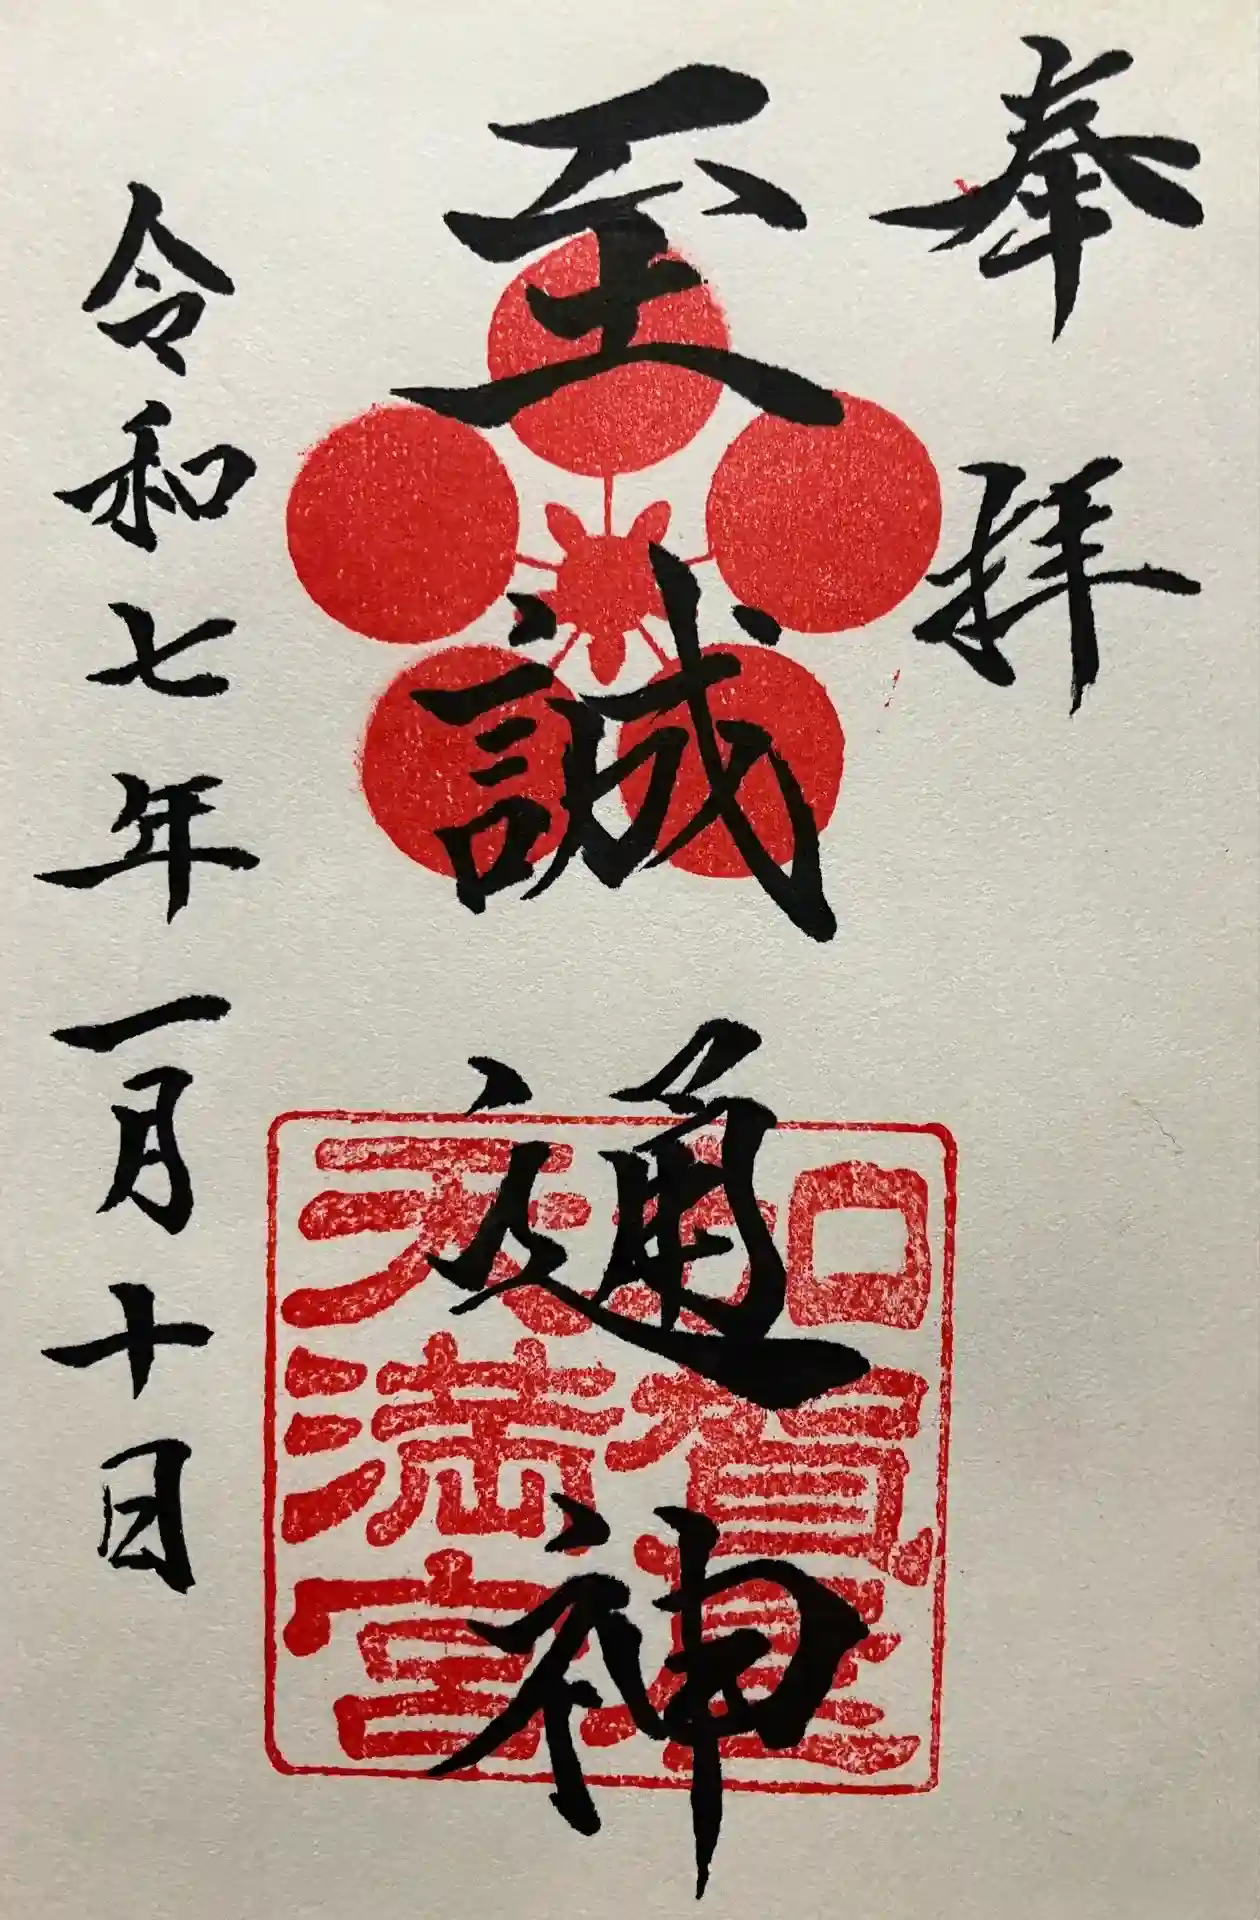 奉拝
至誠通神
加賀㠀
天満宮
令和七年一月十日